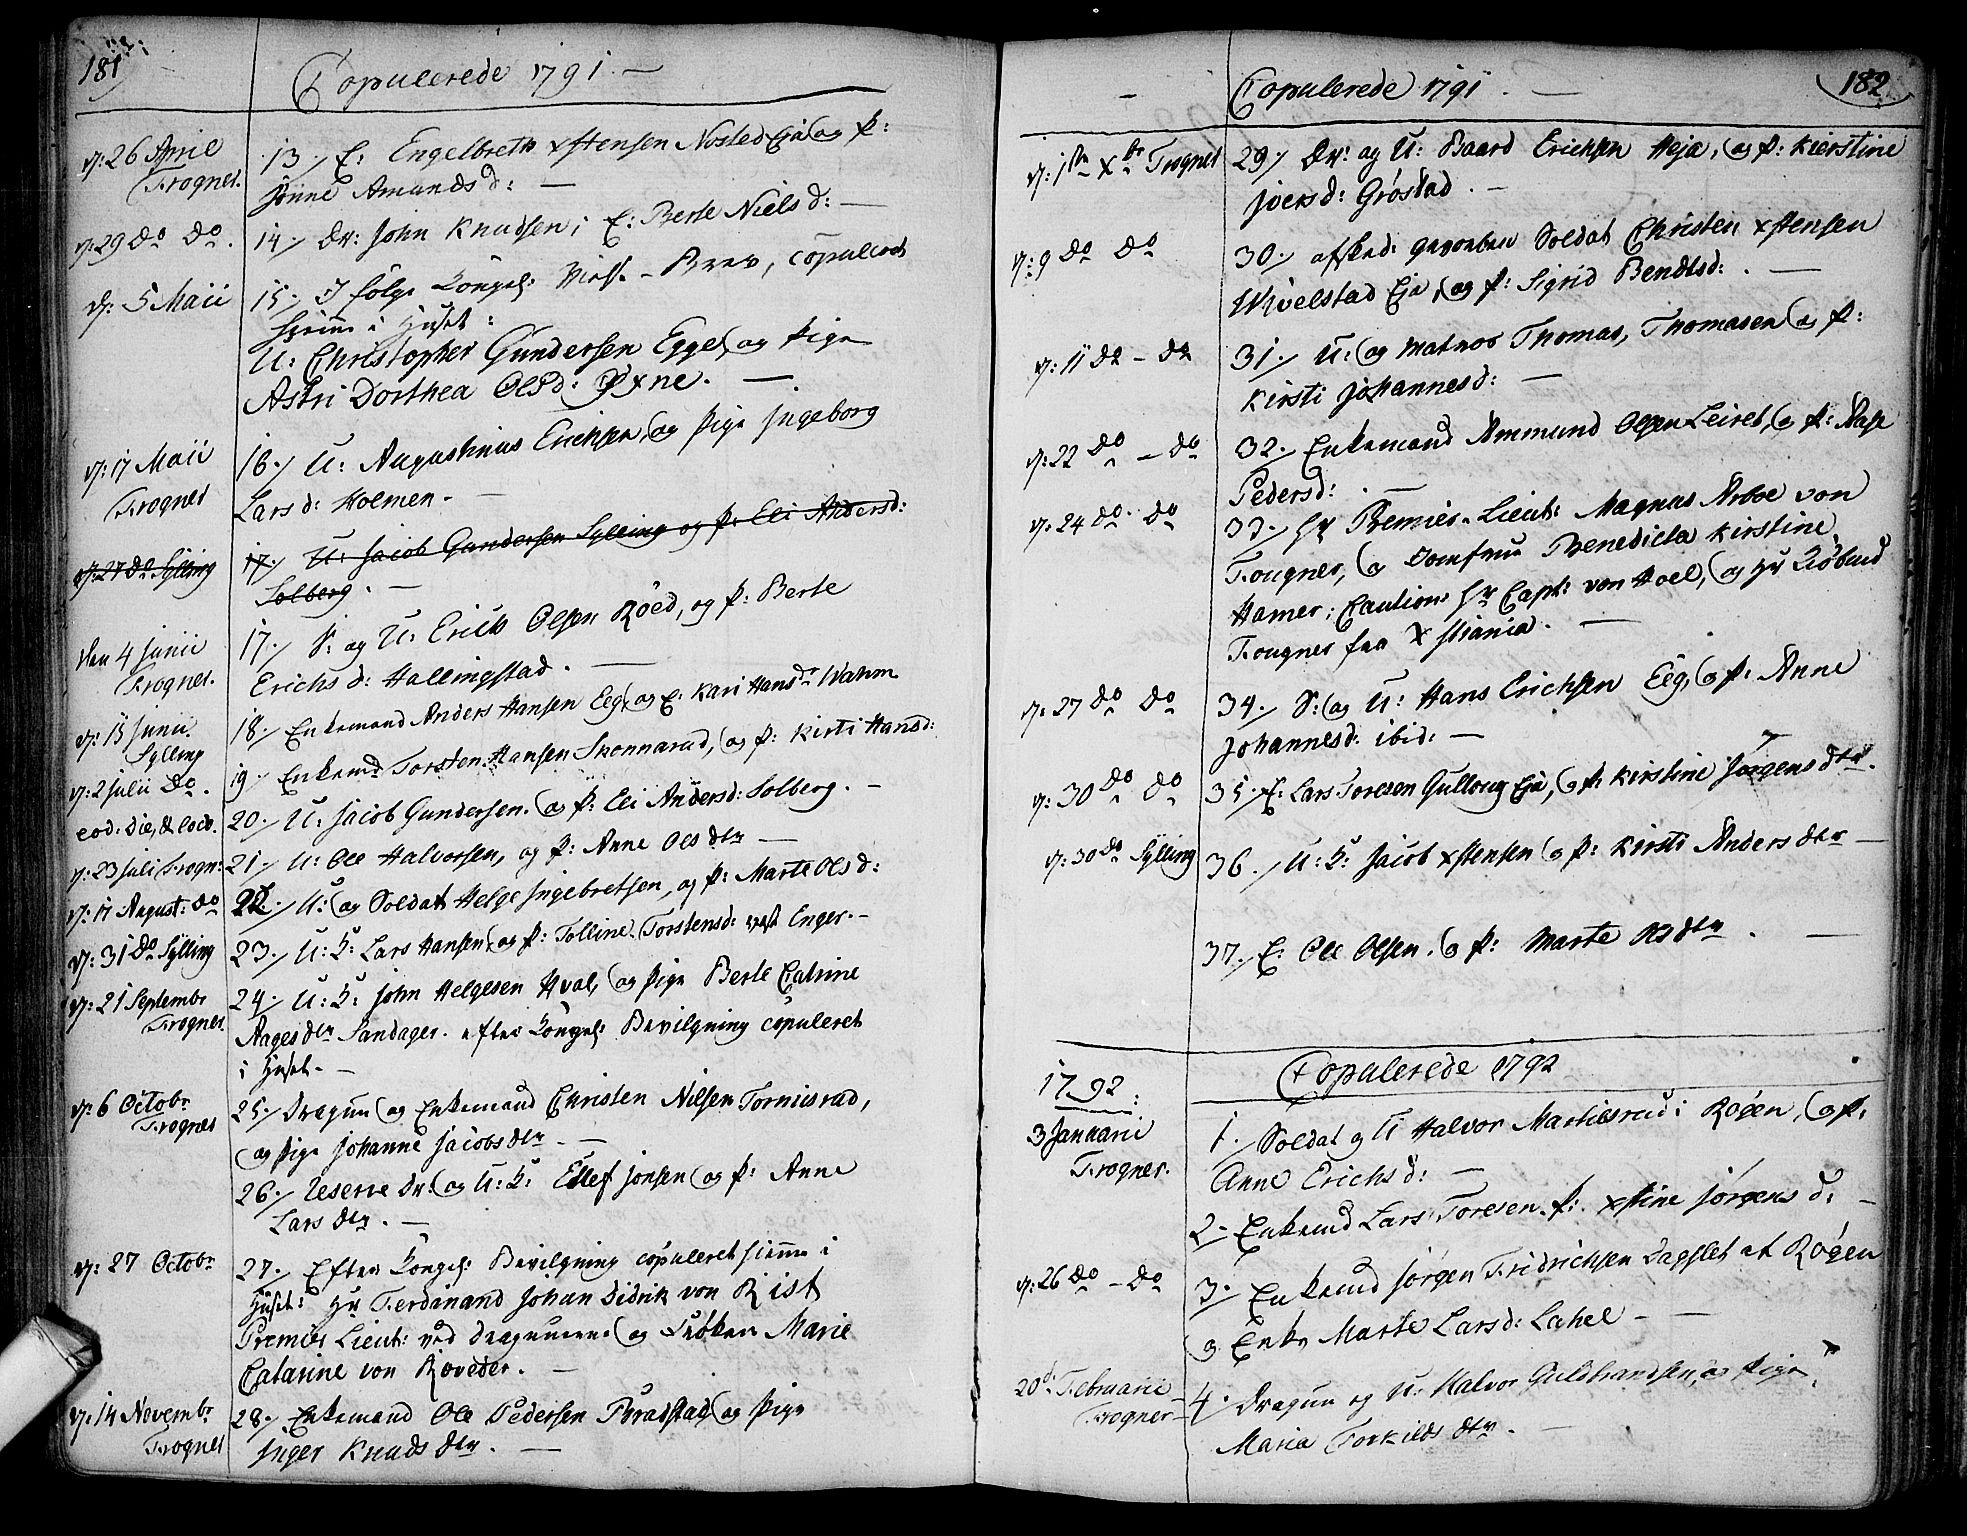 181
Copulerede 1791. —
d: 26 April 13./ E: Engelbreth xstensen Nosted Eja, og P:
Frogner. Jönne Amundsd: —
d: 29 do do. 14./ Dr: John Knudsen, E: Berte Nielsd: —
d: 5 Maii 15./ I følge Kongel: - Brev, copuleret
hjemme i Huset:
U: Christopher Gundersen Egge, og Pige
Astri Dorthea Olsd: Øxne. —
d: 17 Maii 16./ U: Augustinus Erichsen, og Pige Ingeborg
Frogner Larsd: Holmen. —
d: 27 do Sylling 17./ U: Jacob Gundersen Sylling og P: Eli Andersd:
Solberg. —
den 4 Junii 17./ S: og U: Erich Olsen Röed, og P: Berte
Frogner. Erichsd: Hallingstad. —
d: 15 Junii 18./ Enkemand Anders Hansen Eeg, og E: Kari Hansdr
Sylling
d: 2 Julii Do. 19./ Enkemd Torsten Hansen Skonnarud, og P: Kirti Hansd:
eod: die, & loco. 20./ U: Jacob Gundersen. og P: Eli Andersd: Solberg. —
d: 23 Juli Frogn: 21./ U: Ole Halvorsen, og P: Anne Olsdtr —
d: 17 August: do 22./ U: og Soldat Helge Ingebretsen, og P: Marte Olsd:
d: 31 Do Sylling 23./ U: K: Lars Hansen, og P: Tolline Torstensd: Enger. —
d: 21 Septembr 24./ U: K: John Helgesen Hval, og Pige Berte Catrine
Frogner Aagesdtr Sandager. efter Kongel: Bevilgning copuleret
i Huset. —
d: 6 Octobr 25./ Dragun og Enkemand Christen Nilsen Torniisrud,
Frogner og Pige Johanne Jacobsdtr. —
26./ Reserve Dr: og U: K: Ellef Jonsen og P: Anne
Larsdtr. —
d: 27 Octobr 27./ Efter Kongel: Bevilgning copuleret hjemme i
Huset: Hr Ferdinand Johan Didrik von Rist
Premier Lieut: ved Dragunerne og Frøken Marie
Catarine von Röveder. —
d: 14 Novembr 28./ Enkemand Ole Pedersen Bradstad og Pige
Frogner Inger Knudsdtr. —
182
Copulerede 1791. —
d: 1ste Xbr Frogner 29./ Dr: og U: Baard Erichsen Heja, og P: Kierstine
Joersd: Gröstad. —
d: 9 do do 30./ afsked: Soldat Christen xstensen
Wivelstad Eja, og P: Sigrid Bendtsd: . —
d: 11 do - do 31./ U: og Matros Thomas, Thomasen og P:
Kirsti Johannesd: —
d: 22 do - do 32./ Enkemand Ammund Olsen Leiret, og P: Aase
Pedersd: —
d: 24 do. do 33./ Hr Premier-Lieut: Magnus Arboe von
Fougner, og Jomfrue Benedicta Kirstine
Hamer; Caution: Hr Capt: von Hoel, og Hr
Fougner fra Xstiania. —
d: 27 do do 34./ S: og U: Hans Erichsen Eeg, og P: Anne
Johannesd: ibid: —
d: 30 do do 35./ E: Lars Toresen Gullaug Eja, og P: Kirstine Jörgensdtr.
d: 30 do Sylling 36./ U: K: Jacob xstensen og P: Kirsti Andersdtr —
37./ E: Ole Olsen. og P: Marte Olsdtr . —
1792: Copulerede 1792
3 Januarii 1./ Soldat og U Halvor Martiisrud i Rögen, og P:
Frogner. Anne Erichsd: —
2- Enkemd Lars Toresen. P: xstine Jörgensd: —
d: 26 do - do 3./ Enkemd Jörgen Fridrichsen Dagslet af Rögen
og Enke Marte Larsd: Lahel —
20d Februarii 4./ Dragun og U: Halvor Guldbrandsen, og Pige
Frogner — Maria Torkildsdtr. —